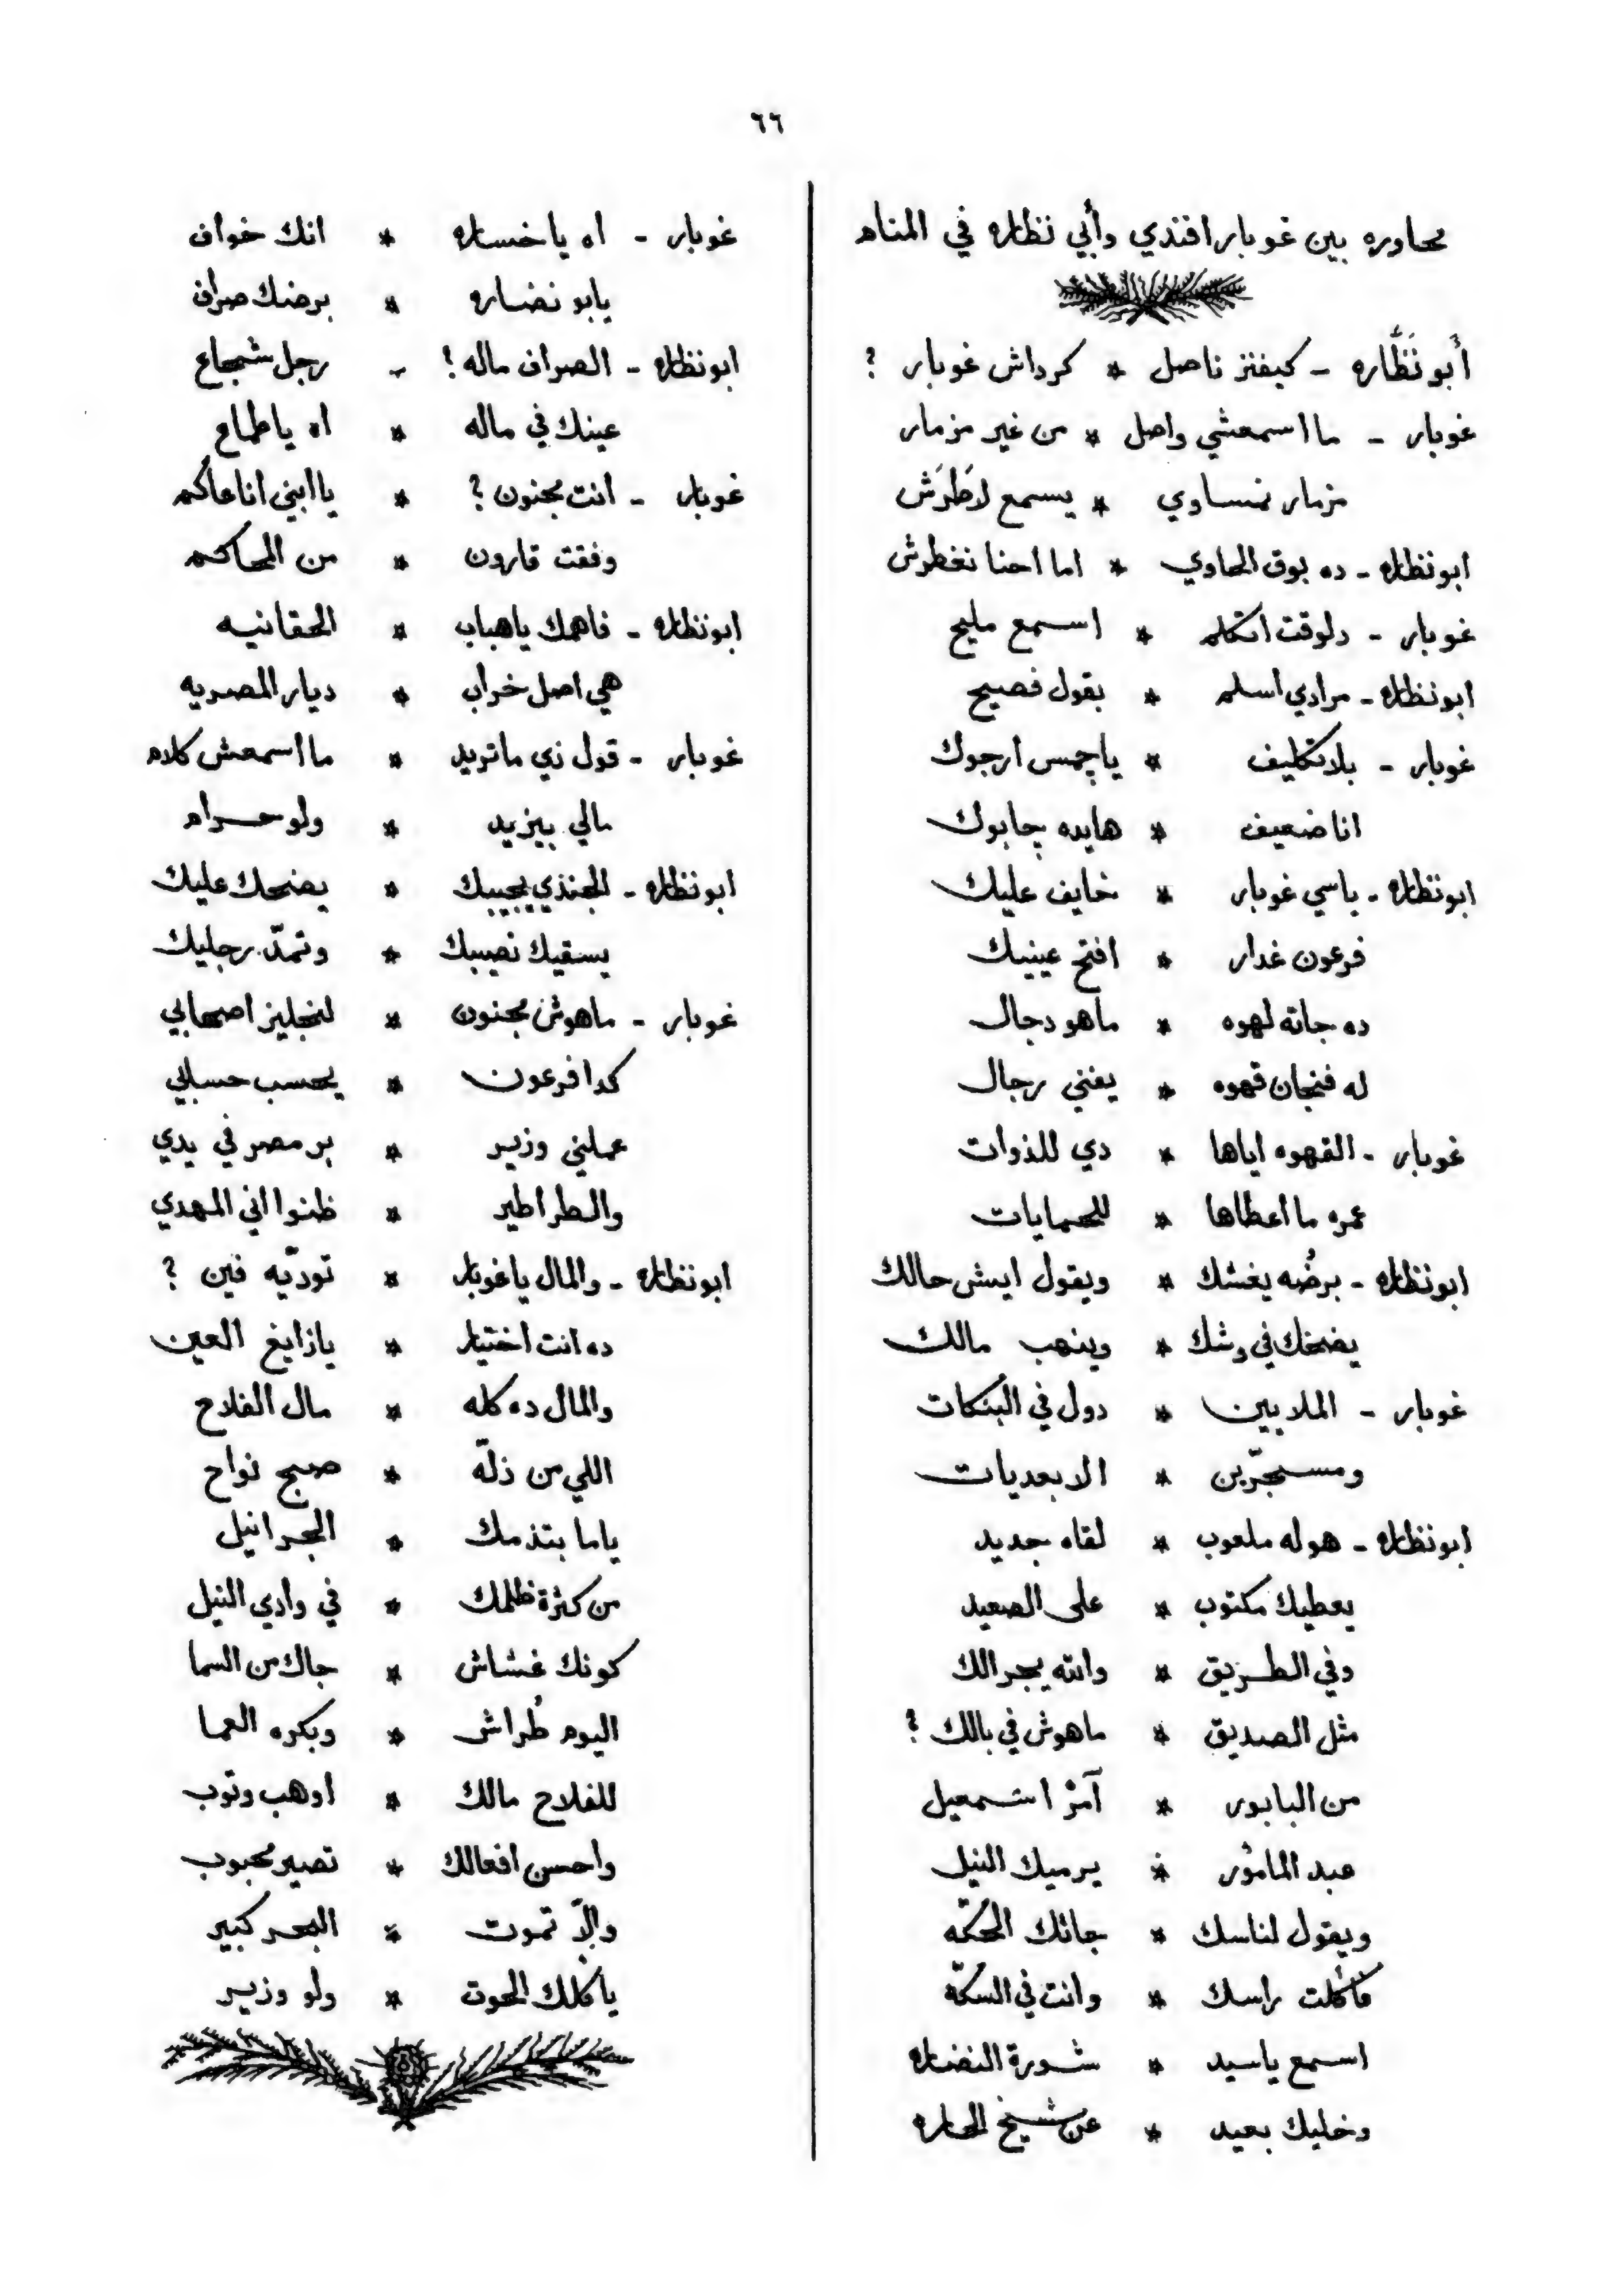 ٦٦
محاوره بين غوبار افندي وأبي نظاره في المنام
أبو نَظَّاره - كيفنز ناصل * كرداش غوبار ؟
غوبار - ما اسمعشي واصل * من غير مزمار
مزمار نمساوي * يسمع لاطرَش
ابونظاره - ده بوق الحاوي * اما احنا نغطرش
غوبار - دلوقت اتكلم * اسمع مليح
ابونظاره - مرادي اسلم * بقول فصيح
غوبار - بلا تكليف * ياچمس ارجوك
انا ضعيف * هايده چابوك
ابونظاره - ياسي غوبار * خايف عليك
فرعون غدار * افتح عينيك
ده جاته لهوه * ماهو دجال
له فنجان قهوه * يفني رجال
غوبار - القهوه اياها * دي للذوات
عمره ما اعطاها * للحمايات
ابونظاره - برضُه يغشك * ويقول ايش حالك
يضحك في وشك * وينهب مالك
غوبار - الملايين * دول في البنكات
ومسجّرين * الابعديات
ابونظاره - هو له ملعوب * لقاه جديد
يعطيك مكتوب * على الصعيد
وفي الطريق * والله يجرالك
مثل الصديق * ماهوش في بالك ؟
من البابور * آمرْ اسمعيل
عبد المامور * يرميك النيل
ويقول لناسك * جاتك الحكّه
فأكلت راسك * وانت في السكّه
اسمع ياسيد * شورة النضاره
وخليك بعيد * عن شيخ الحاره
غوبار - اه ياخساره * انك خواف
يابو نضاره * برضك صراف
ابونظاره - الصراف ماله ؟ - رجل شجاع
عينك في ماله * اه ياطماع
غوبار - انت مجنون ؟ * يا ابني انا عاكُم
وفقت قارون * من المحاكم
ابونظاره - فاهمك ياهباب * الحقانيه
هي اصل خراب * ديار المصريه
غوبار - قول زي ماتريد * ما اسمعش كلام
مالي بيزيد * ولو حرام
ابونظاره - الجندي يجيبك * يضحك عليك
يسقيك نصيبك * وتمدّ رجليك
غوبار - ماهوش مجنون * لنجليز اصحابي
كدا فرعون * يحسب حسابي
عملني وزير * بر مصر في يدي
والطراطير * ظنوا اني المهدي
ابونظاره - والمال ياغوبار * تودّيه فين ؟
ده انت اختيار * يازايغ العين
والمال ده كله * مال الفلاح
اللي من ذلّه * صبح نواح
ياما بتذمك * الجرانيل
من كثرة ظلمك * في وادي النيل
كونك غشاش * جاك من السما
اليوم طُراش * وبكره العما
للفلاح مالك * اوهب وتوب
واحسن افعالك * تصير محبوب
والاّ تموت * البحر كبير
ياكلك الحوت * ولو وزير